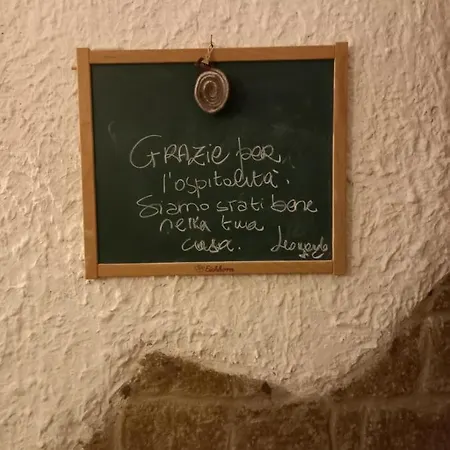 GRAZIE per
l'ospitalità.
Siamo stati bene
nella tua
casa.